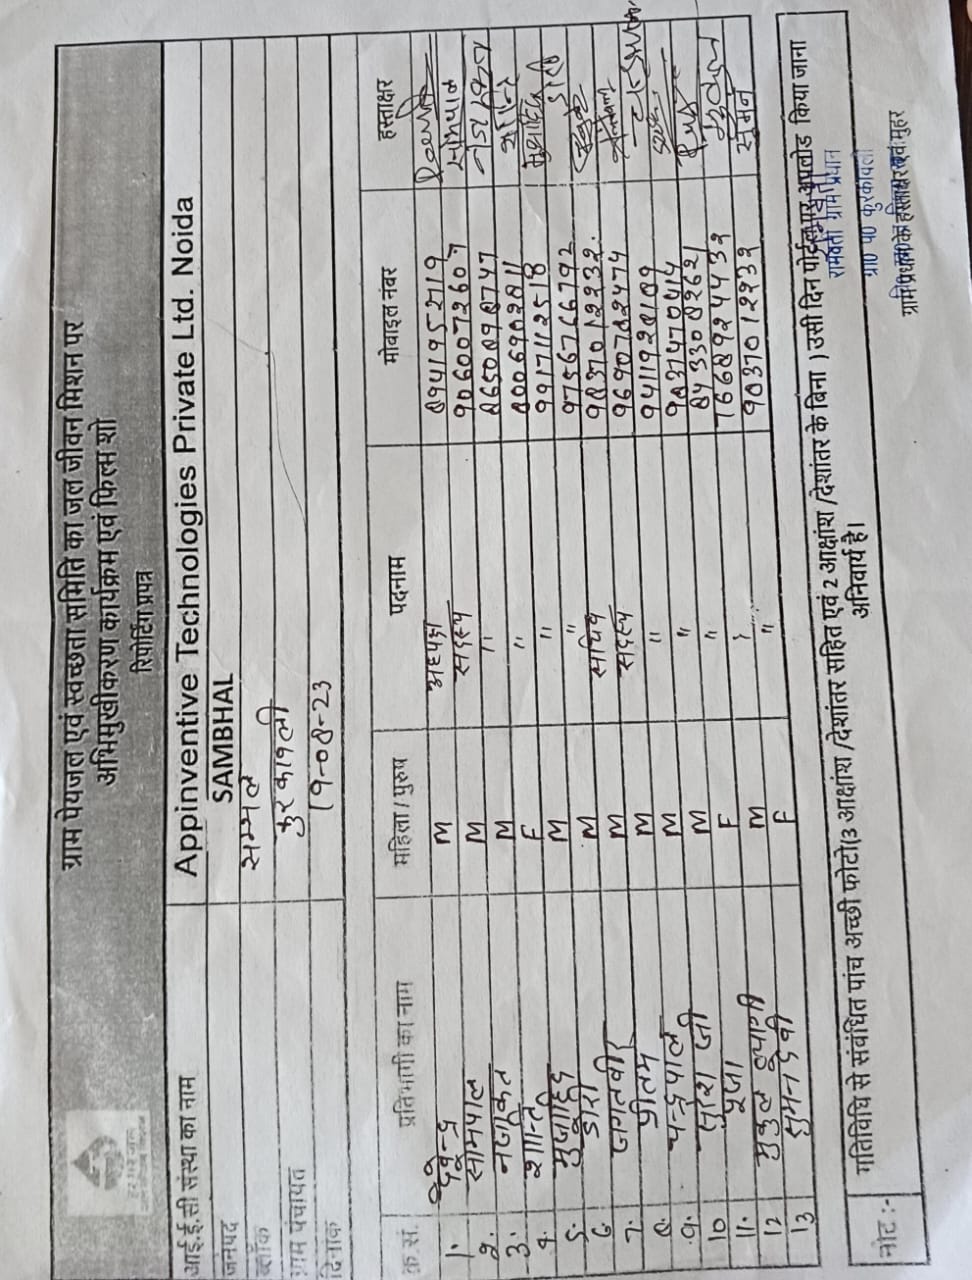 ग्राम पेयजल एवं स्वच्छता समिति का जल जीवन मिशन पर
अभिमुखीकरण कार्यक्रम एवं फिल्म शो
रिपोर्टिंग प्रपत्र
हर घर जल
आई.ई.सी संस्था का नाम Appinventive Technologies Private Ltd. Noida
जनपद SAMBHAL
ब्लॉक सम्भल
ग्राम पंचायत कुरकावली
दिनांक 19-08-23
क्र.सं. प्रतिभागी का नाम महिला / पुरुष पदनाम मोबाइल नंबर हस्ताक्षर
1. देवेन्द्र M अध्यक्ष 8941952719
2. सोमपाल M सदस्य 9060072607 सोमपाल
3. नजाकत M " 8650898747 नजाकत
4. शान्ति F " 8006902811 शान्ति
5. मुजाहिद M " 9917112518
6 डोरी M " 9756766792 डोरी
7. जगतवीर M सचिव 9837012232
8. प्रीतम M सदस्य 9690782474
9. चन्द्रपाल M " 9411928109
10 M " 9031470414
11. पूजा F " 8433088262
12 मुकुल त्यागी M 7668924432
13 सुमन देवी F " 9837012232 सुमन
नोट :- गतिविधि से संबंधित पांच अच्छी फोटो(3 आक्षांश /देशांतर सहित एवं 2 आक्षांश /देशांतर के बिना ) उसी दिन पोर्टल पर अपलोड किया जाना
अनिवार्य है।
रामवती ग्राम प्रधान
ग्रा० प० कुरकावली
ग्राम प्रधान के हस्ताक्षर एवं मुहर